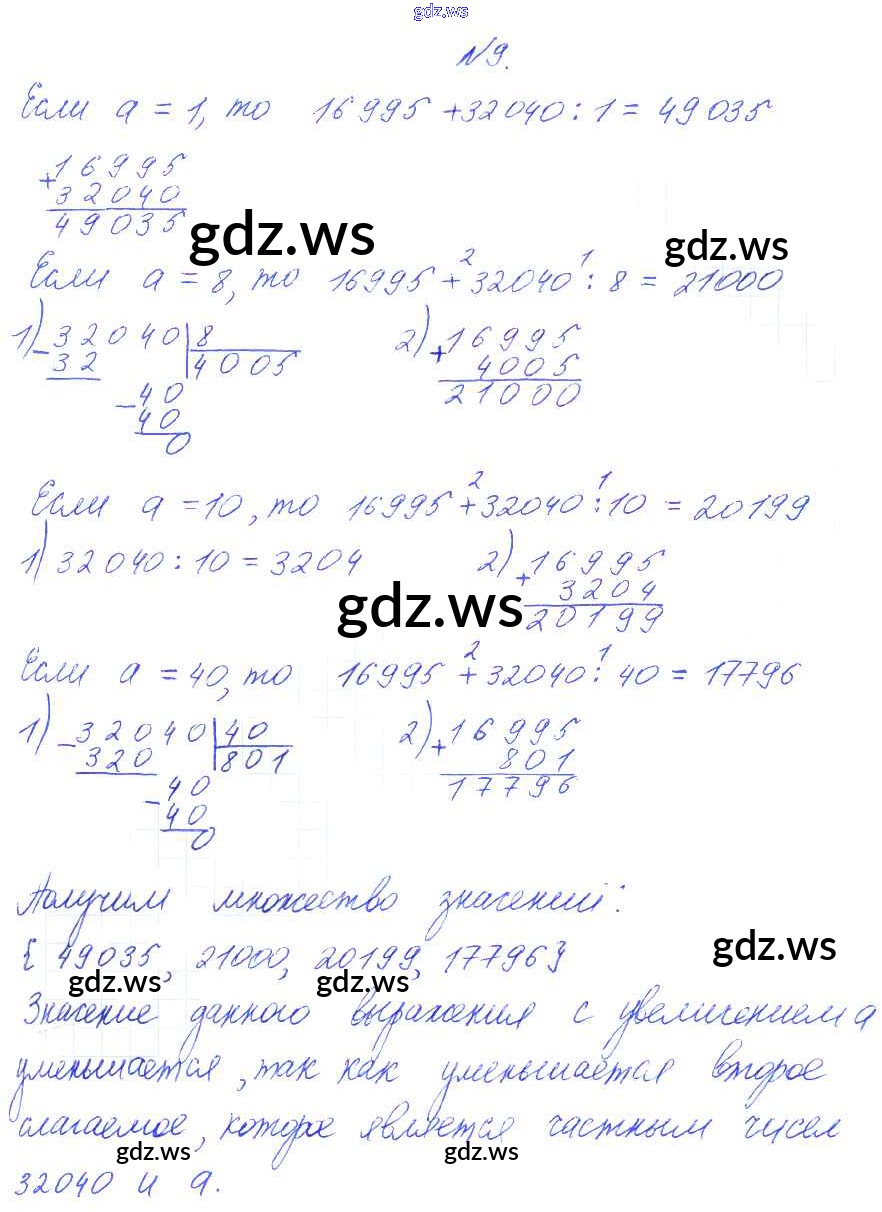 gdz.ws
№9.
Если a = 1, то 16995 + 32040 : 1 = 49035
+16995
32040
49035
gdz.ws
gdz.ws
2 1
Если a = 8, то 16995 + 32040 : 8 = 21000
1) 32040 | 8 2) +16995
-32 4005 4005
-40 21000
40
0
2 1
Если a = 10, то 16995 + 32040 : 10 = 20199
1) 32040 : 10 = 3204 2) +16995
3204
gdz.ws
20199
2 1
Если a = 40, то 16995 + 32040 : 40 = 17796
1) -32040 | 40 2) +16995
320 801 801
-40 17796
40
0
Получим множество значений:
{49035, 21000, 20199, 17796}
gdz.ws
gdz.ws gdz.ws
Значение данного выражения с увеличением a
уменьшается, так как уменьшается второе
слагаемое, которое является частным чисел
gdz.ws gdz.ws
32040 и a.